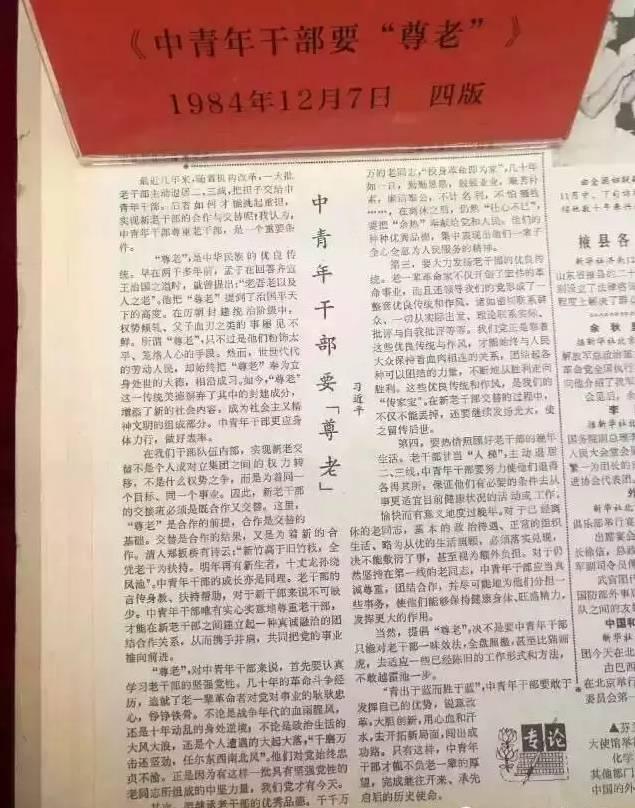 《中青年干部要“尊老”》
1984年12月7日 四版
中青年干部要「尊老」
习近平
最近几年来，随着机构改革，一大批
老干部主动退居二、三线，把担子交给中
青年干部。后者如何才能挑起重担，
实现新老干部的合作与交替呢？我认为，
中青年干部尊重老干部，是一个重要条
件。
“尊老”，是中华民族的优良传
统。早在两千多年前，孟子在回答齐宣
王治国之道时，就曾提出：“老吾老以及
人之老”。他把“尊老”提到了治国平天下
的高度。在历朝封建统治阶级中，
权势倾轧、父子血刃之类的事屡见不
鲜。所谓“尊老”，只不过是他们粉饰太
平、笼络人心的手段。然而，世世代代
的劳动人民，却始终把“尊老”奉为立
身处世的大德，相沿成习。如今，“尊老”
这一传统美德摒弃了其中的封建成分，
增添了新的社会内容，成为社会主义精
神文明的组成部分。中青年干部更应身
体力行，做好表率。
在我们干部队伍内部，实现新老交
替不是个人或对立集团之间的权力转
移，不是什么权势之争，而是为着同一
个目标、同一个事业。因此，新老干部
的交接班必须是既合作又交替。这里，
“尊老”是合作的前提，合作是交替的
基础。交替是合作的结果，又是为着新的合
作。清人郑板桥有诗云：“新竹高于旧竹枝，全
凭老干为扶持。明年再有新生者，十丈龙孙绕
凤池”。中青年干部的成长亦是同理。老干部的
言传身教、扶持帮助，对于新干部来说不可缺
少。中青年干部唯有实心实意地尊重老干部，
才能在新老干部之间建立起一种真诚融洽的团
结合作关系，从而携手并肩，共同把党的事业
推向前进。
“尊老”，对中青年干部来说，首先要认真
学习老干部的坚强党性。几十年的革命斗争经
历，造就了老一辈革命者对党对事业的耿耿忠
心，铮铮铁骨。不论是战争年代的血雨腥风，
还是十年动乱的身处逆境；不论是政治生活的
大风大浪，还是个人遭遇的大起大落，“千磨万
击还坚劲，任尔东西南北风”。他们对党始终忠
贞不渝。正是因为有这样一批具有坚强党性的
老同志所组成的中坚力量，我们党才有今天。
其次，要继承老干部的优秀品德。千千万
万的老同志，“投身革命即为家”，几十年
如一日，勤勤恳恳，兢兢业业，艰苦朴
素，廉洁奉公，不计名利，不怕牺牲
……，在离休之后，仍然“壮心不已”，
要把“余热”奉献给党和人民。他们的
种种优秀品德，集中表现出他们一辈子
全心全意为人民服务的精神。
第三，要大力发扬老干部的优良传
统。老一辈革命家不仅开创了宏伟的革
命事业，而且还领导我们的党形成了一
整套优良传统和作风，诸如密切联系群
众、一切从实际出发、理论联系实际、
批评与自我批评等等。我们党正是靠着
这些优良传统与作风，才能始终与人民
大众保持着血肉相连的关系，团结起各
种可以团结的力量，不断地从胜利走向
胜利。这些优良传统和作风，是我们的
“传家宝”。在新老干部交替的过程中，
不仅不能丢掉，还要继续发扬光大，使
之留传后世。
第四，要热情照顾好老干部的晚年
生活。老干部甘当“人梯”，主动退居
二、三线，中青年干部要努力使他们退得
各得其所，保证他们有必要的条件去从
事更适宜目前健康状况的活动或工作，
愉快而有意义地度过晚年。对于已经离
休的老干部，基本的政治待遇、正常的组织
生活、略为从优的生活照顾，必须落实兑现，
决不能敷衍了事，甚至视为额外负担。对于仍
然坚持在第一线的老同志，中青年干部应当真
诚尊重，团结合作，并尽可能地为他们分担一
些事务，使他们能够保持健康身体、旺盛精力，
发挥更大的作用。
当然，提倡“尊老”，决不是要中青年干部
只能对老干部一味效法，全盘照搬，甚至比猫画
虎，去适应一些已经陈旧的工作形式和方法，
不敢越雷池一步。
“青出于蓝而胜于蓝”，中青年干部要敢于
发挥自己的优势，锐意改
革，大胆创新，用心血和汗
水，去开拓新局面，闯出成
功路。只有这样，中青年
干部才能不负老一辈的厚
望，完成继往开来、承先
启后的历史使命。
专论
掖县各
新华社济南12
山东省掖县的二十
别设立了法律咨
程度上解决了群
余秋里
据新华社北
解放军总政治部主
革命党全国执行
向他介绍了我军
会见后，余
李
据新华社北
国务院副总理
人民大会堂会
繁一为团长的
进协会代表团
新华社北
俱乐部举行宴
出席宴会
长杨信，总政
军副司令员傅
武官团
国防部外事局
队之间的友
中国和
新华社北
团今天在北
由巴西
在北京举行
委员会第一
▲芬兰
大使馆举
化学
其他部门
中国的外